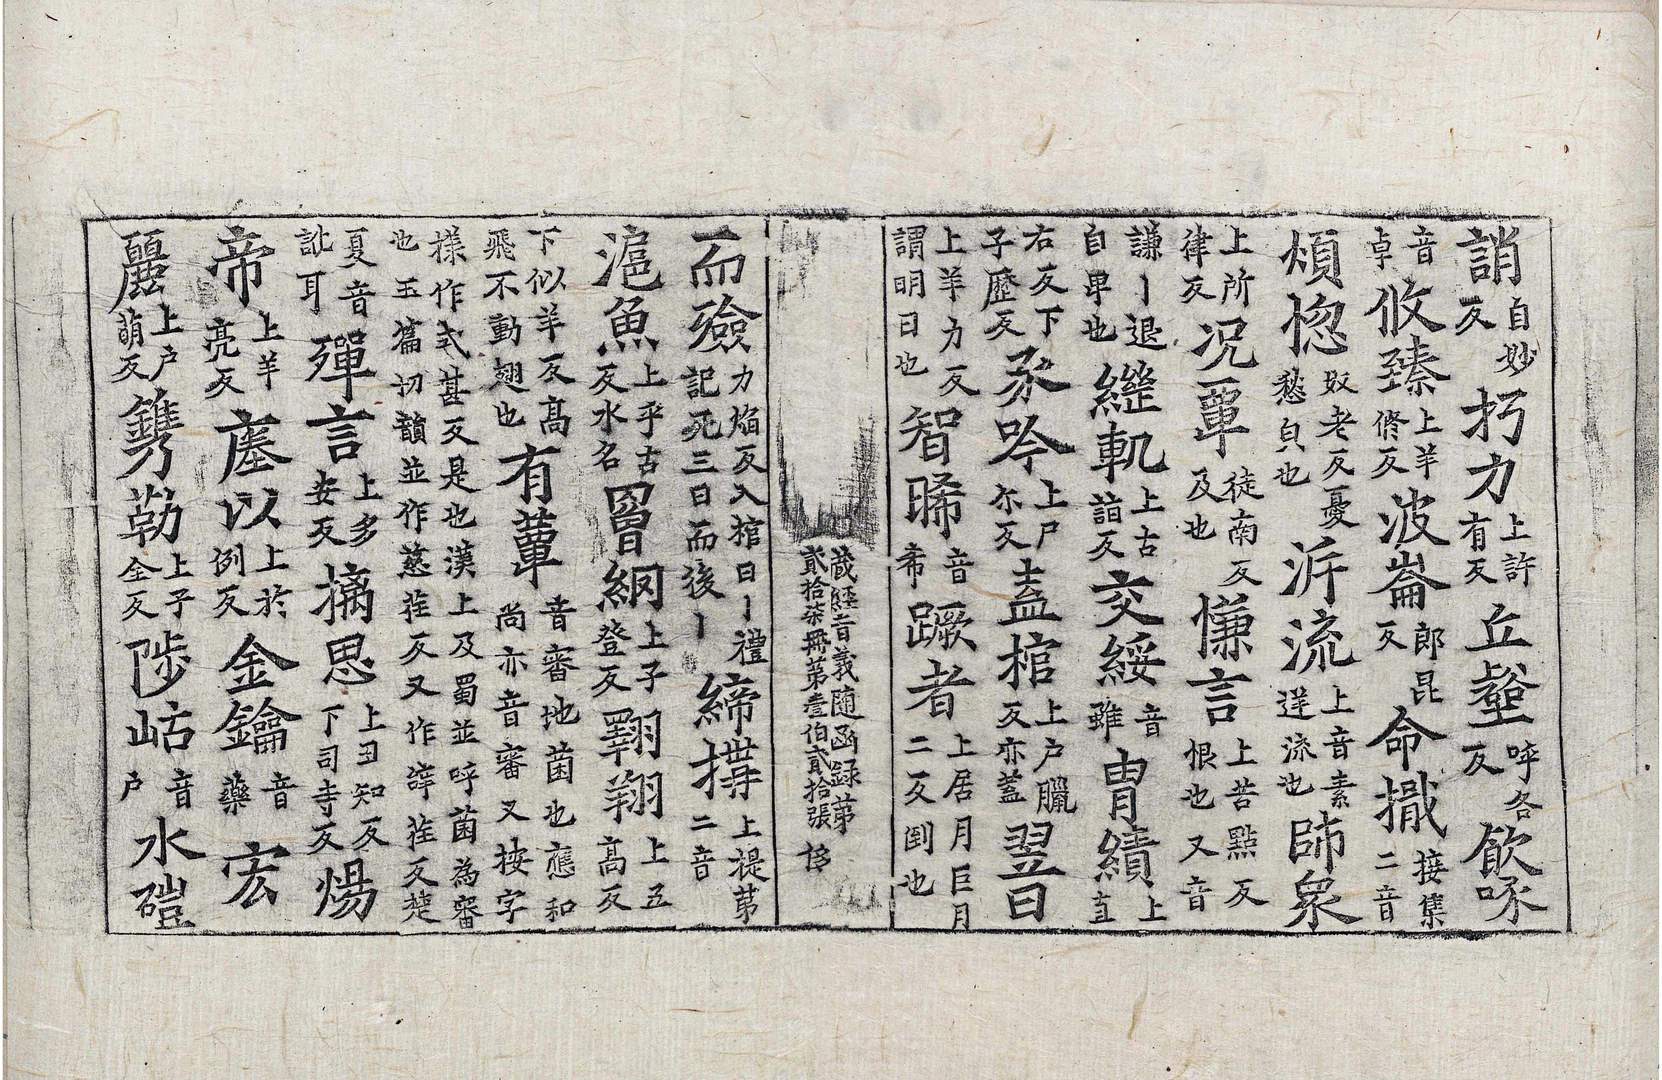 誚自妙反朽力上許有反丘壑呼各反飲啄
音卓攸臻上羊修反波崙郎昆反命撒接集二音
煩惚奴老反憂愁皃也泝流上音素逆流也師衆
上所律反况覃徒南反及也慊言上苦點反恨也又音
謙丨退自卑也継軌上古詣反交綏音雖胄績上直
右反下子歷反吟上尸尔反盖棺上户臘反亦盖翌日
上羊力反謂明日也智晞音希蹶者上居月巨月二反倒也
藏經音義随函録第貳拾柒冊第叁伯貳拾張 侈
而殮力焰反入棺曰丨禮記死三日而後丨締搆上提第二音
滬魚上乎古反水名罾網上子登反翱翔上五高反
下似羊反高飛不動翅也有蕈音審地菌也應和尚亦音審又按字
樣作式甚反是也漢上及蜀並呼菌為審也玉篇切韻並作慈荏反又作辝荏反楚
夏音訛耳殫言上多安反摛思上丑知反下司寺反煬
帝上羊亮反㙪以上於例反金鑰音藥宏
麗上户萌反鐫勒上子全反陟岵音户水磑